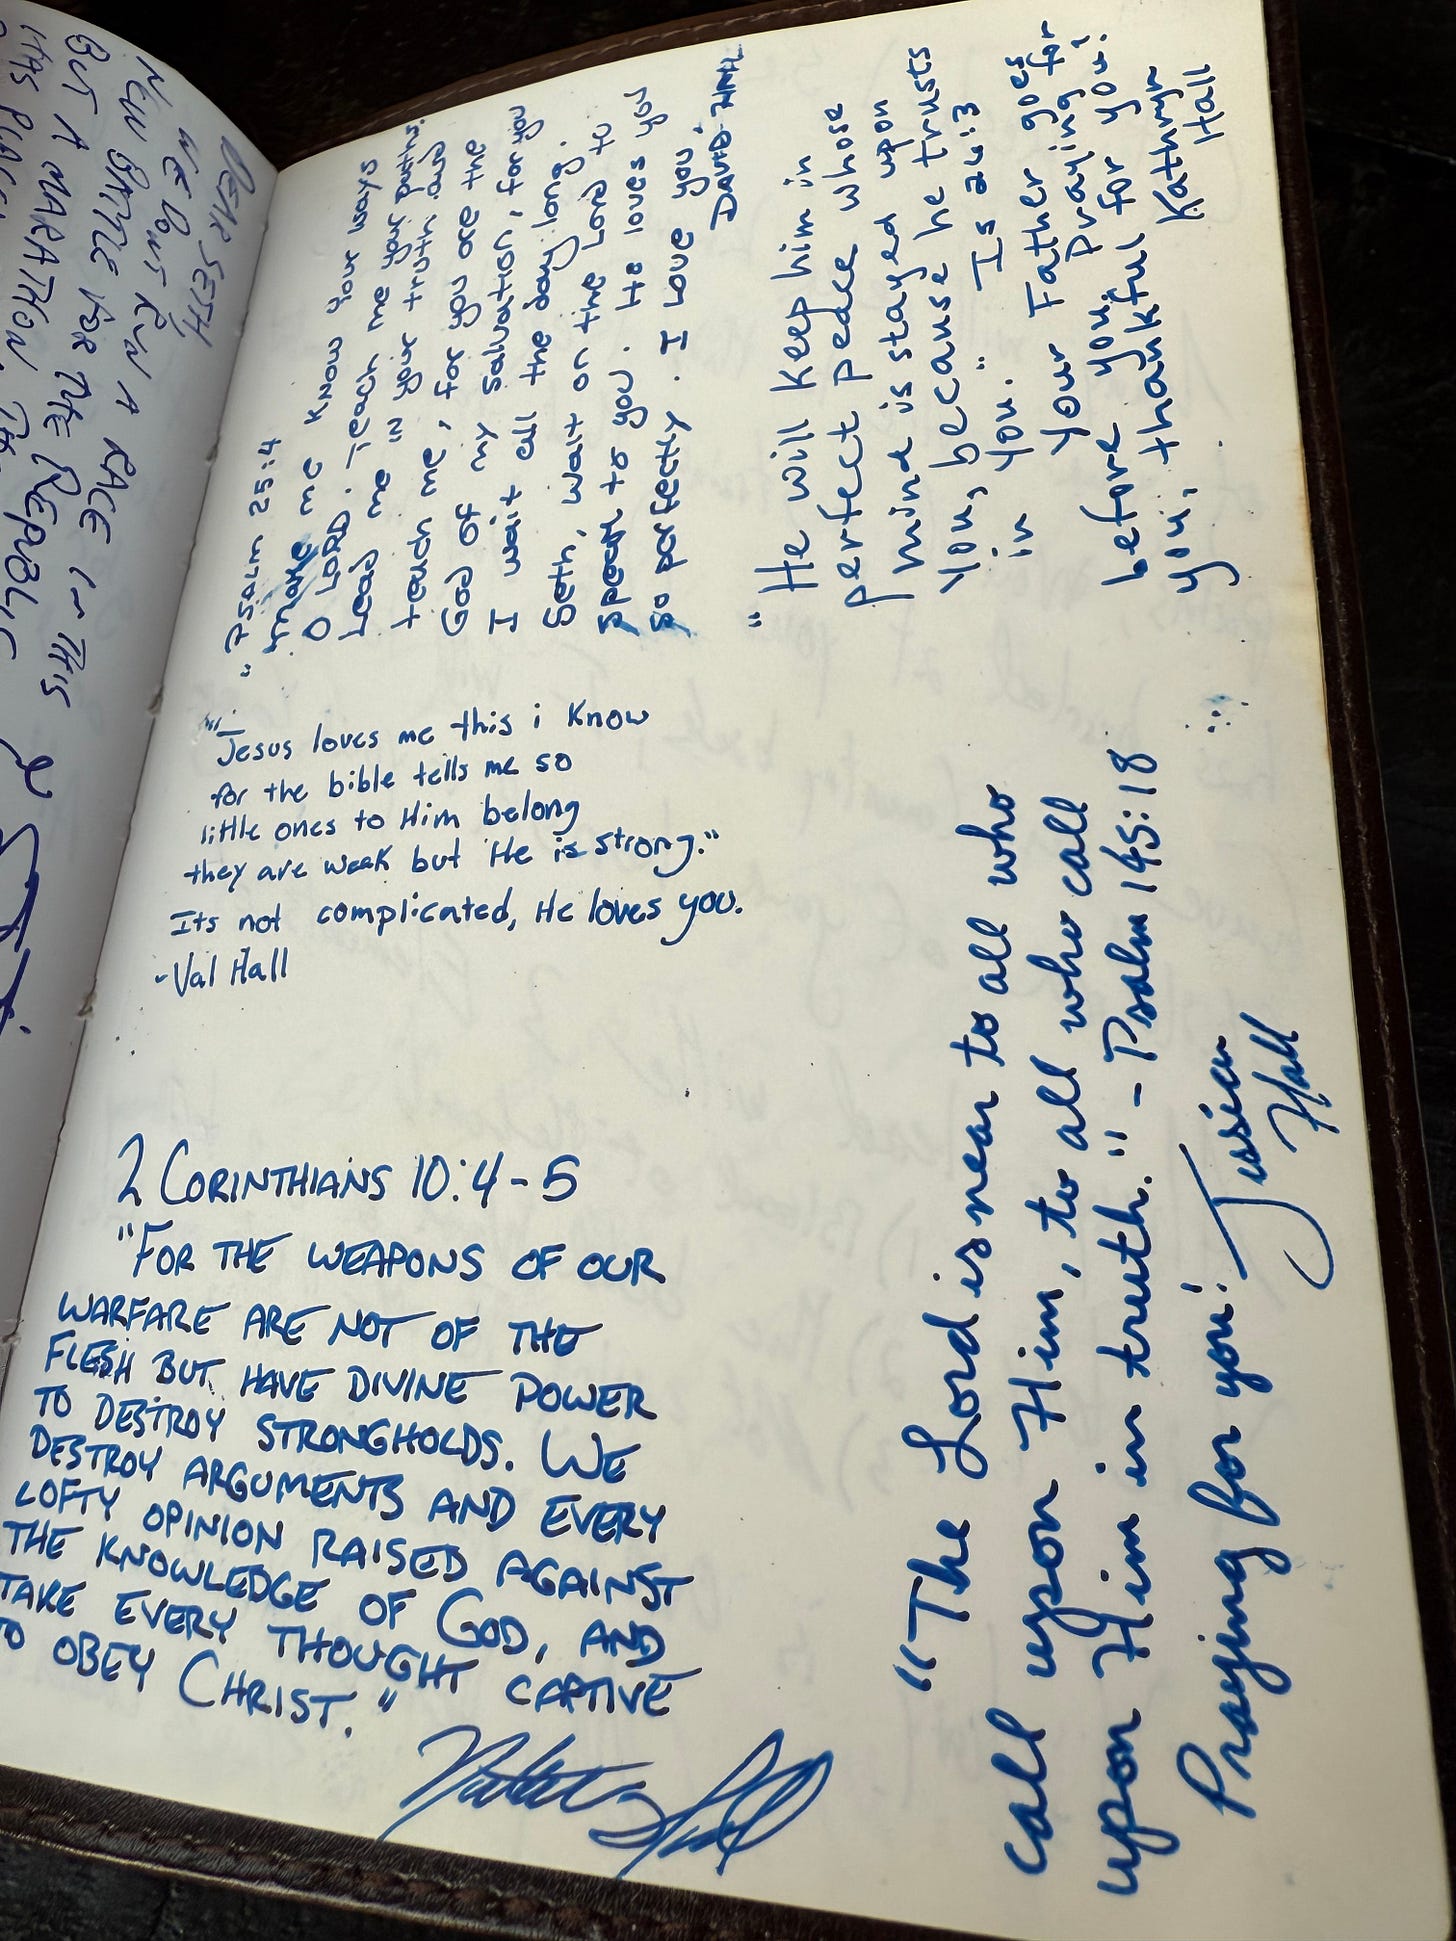 DEAR SETH,
WE DON'T RUN A RACE IN THIS
NEW BATTLE FOR THE REPUBLIC
BUT A MARATHON.
"Psalm 25:4
make me know your ways
O LORD. Teach me your paths.
Lead me in your truth and
teach me, for you are the
God of my salvation, for you
I wait all the day long.
Seth, wait on the Lord to
speak to you. He loves you
so perfectly. I love you,
DAVID HALL
"He will keep him in
perfect peace whose
mind is stayed upon
you, because he trusts
in you." Is 26:3
Your Father goes
before you. Praying for
you, thankful for you!
Kathryn
Hall
"Jesus loves me this i know
for the bible tells me so
little ones to Him belong
they are weak but He is strong."
Its not complicated, He loves you.
-Val Hall
2 CORINTHIANS 10:4-5
"FOR THE WEAPONS OF OUR
WARFARE ARE NOT OF THE
FLESH BUT HAVE DIVINE POWER
TO DESTROY STRONGHOLDS. WE
DESTROY ARGUMENTS AND EVERY
LOFTY OPINION RAISED AGAINST
THE KNOWLEDGE OF GOD, AND
TAKE EVERY THOUGHT CAPTIVE
TO OBEY CHRIST."
"The Lord is near to all who
call upon Him, to all who call
upon Him in truth." - Psalm 145:18
Praying for you! Jessica
Hall